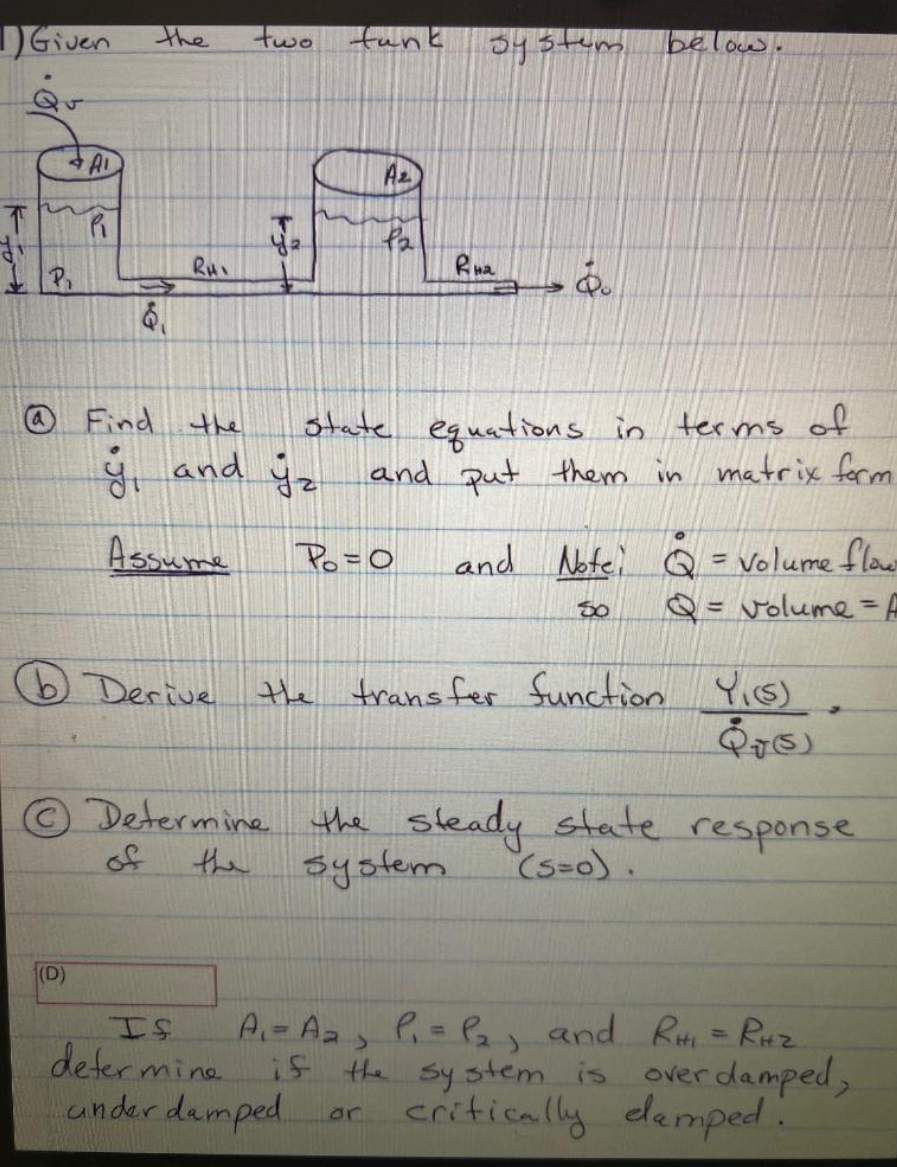 1) Given the two tank system below.
Q̇v
A1
A2
y1
ρ1
y2
ρ2
P1
RH1
RH2
Q̇o
Q̇1
ⓐ Find the state equations in terms of
ẏ1 and ẏ2 and put them in matrix form
Assume P0=0 and Note: Q̇ = volume flow
so Q = volume = A
ⓑ Derive the transfer function Y1(s)
Q̇v(s) .
ⓒ Determine the steady state response
of the system (s=0).
(D)
If A1=A2, ρ1=ρ2, and RH1=RH2
determine if the system is overdamped,
underdamped or critically damped.